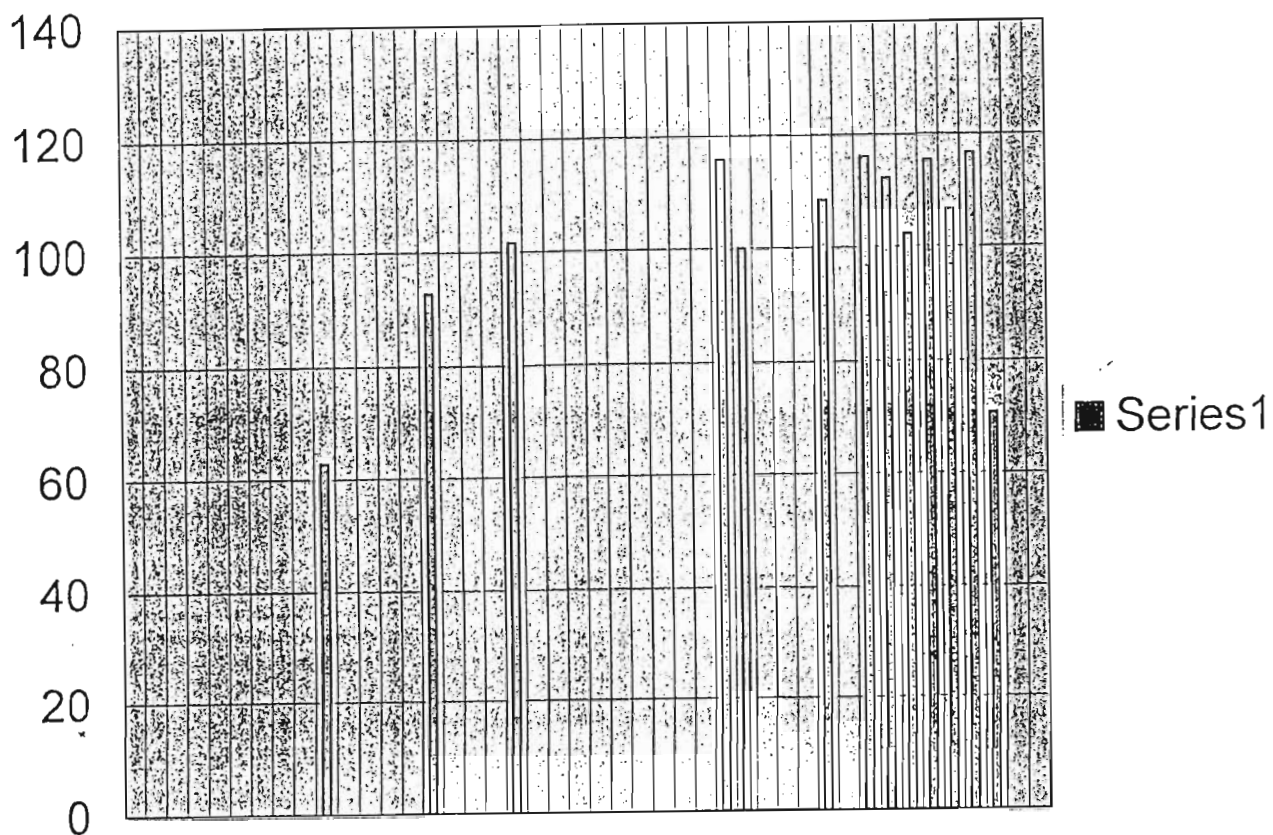 140
120
100
80
60
40
20
0
Series1